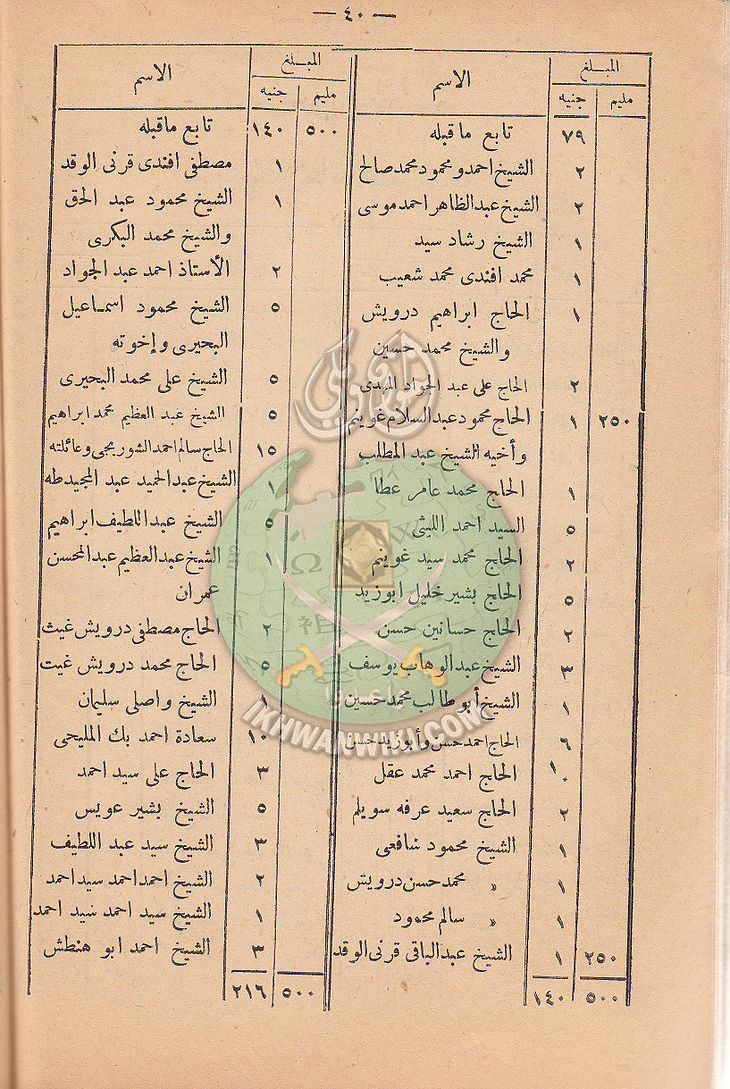 — ٤٠ —
المبلغ الاسم
مليم جنيه
٧٩ تابع ماقبله
٢ الشيخ احمد ومحمود محمد صالح
٢ الشيخ عبد الظاهر احمد موسى
١ الشيخ رشاد سيد
١ محمد افندى محمد شعيب
١ الحاج ابراهيم درويش
والشيخ محمد حسين
٢ الحاج على عبد الجواد المهدى
٢٥٠ ١ الحاج محمود عبد السلام غوينم
وأخيه الشيخ عبد المطلب
١ الحاج محمد عامر عطا
٥ السيد احمد الليثى
٢ الحاج محمد سيد غوينم
٥ الحاج بشير خليل ابوزيد
٢ الحاج حسانين حسن
٣ الشيخ عبد الوهاب يوسف
١ الشيخ أبو طالب محمد حسين
٦ الحاج احمد حسن وأبوزيد حسن
١٠ الحاج احمد محمد عقل
٢ الحاج سعيد عرفه سويلم
١ الشيخ محمود شافعى
١ » محمد حسن درويش
١ » سالم محمود
٢٥٠ ١ الشيخ عبد الباقى قرنى الوقد
٥٠٠ ١٤٠
المبلغ الاسم
مليم جنيه
٥٠٠ ١٤٠ تابع ماقبله
١ مصطفى افندى قرنى الوقد
١ الشيخ محمود عبد الحق
والشيخ محمد البكرى
٢ الأستاذ احمد عبد الجواد
٥ الشيخ محمود اسماعيل
البحيرى وإخوته
٥ الشيخ على محمد البحيرى
٥ الشيخ عبد العظيم محمد ابراهيم
١٥ الحاج سالم احمد الشوربجى وعائلته
١ الشيخ عبد الحميد عبد المجيد طه
٥ الشيخ عبد اللطيف ابراهيم
١ الشيخ عبد العظيم عبد المحسن
عمران
٢ الحاج مصطفى درويش غيث
٥ الحاج محمد درويش غيث
١ الشيخ واصلى سليمان
١٠ سعادة احمد بك المليحى
٣ الحاج على سيد احمد
٥ الشيخ بشير عويس
٣ الشيخ سيد عبد اللطيف
٢ الشيخ احمد احمد سيد احمد
١ الشيخ سيد احمد سيد احمد
٣ الشيخ احمد ابو هنطش
٥٠٠ ٢١٦
IKHWANWIKI.COM